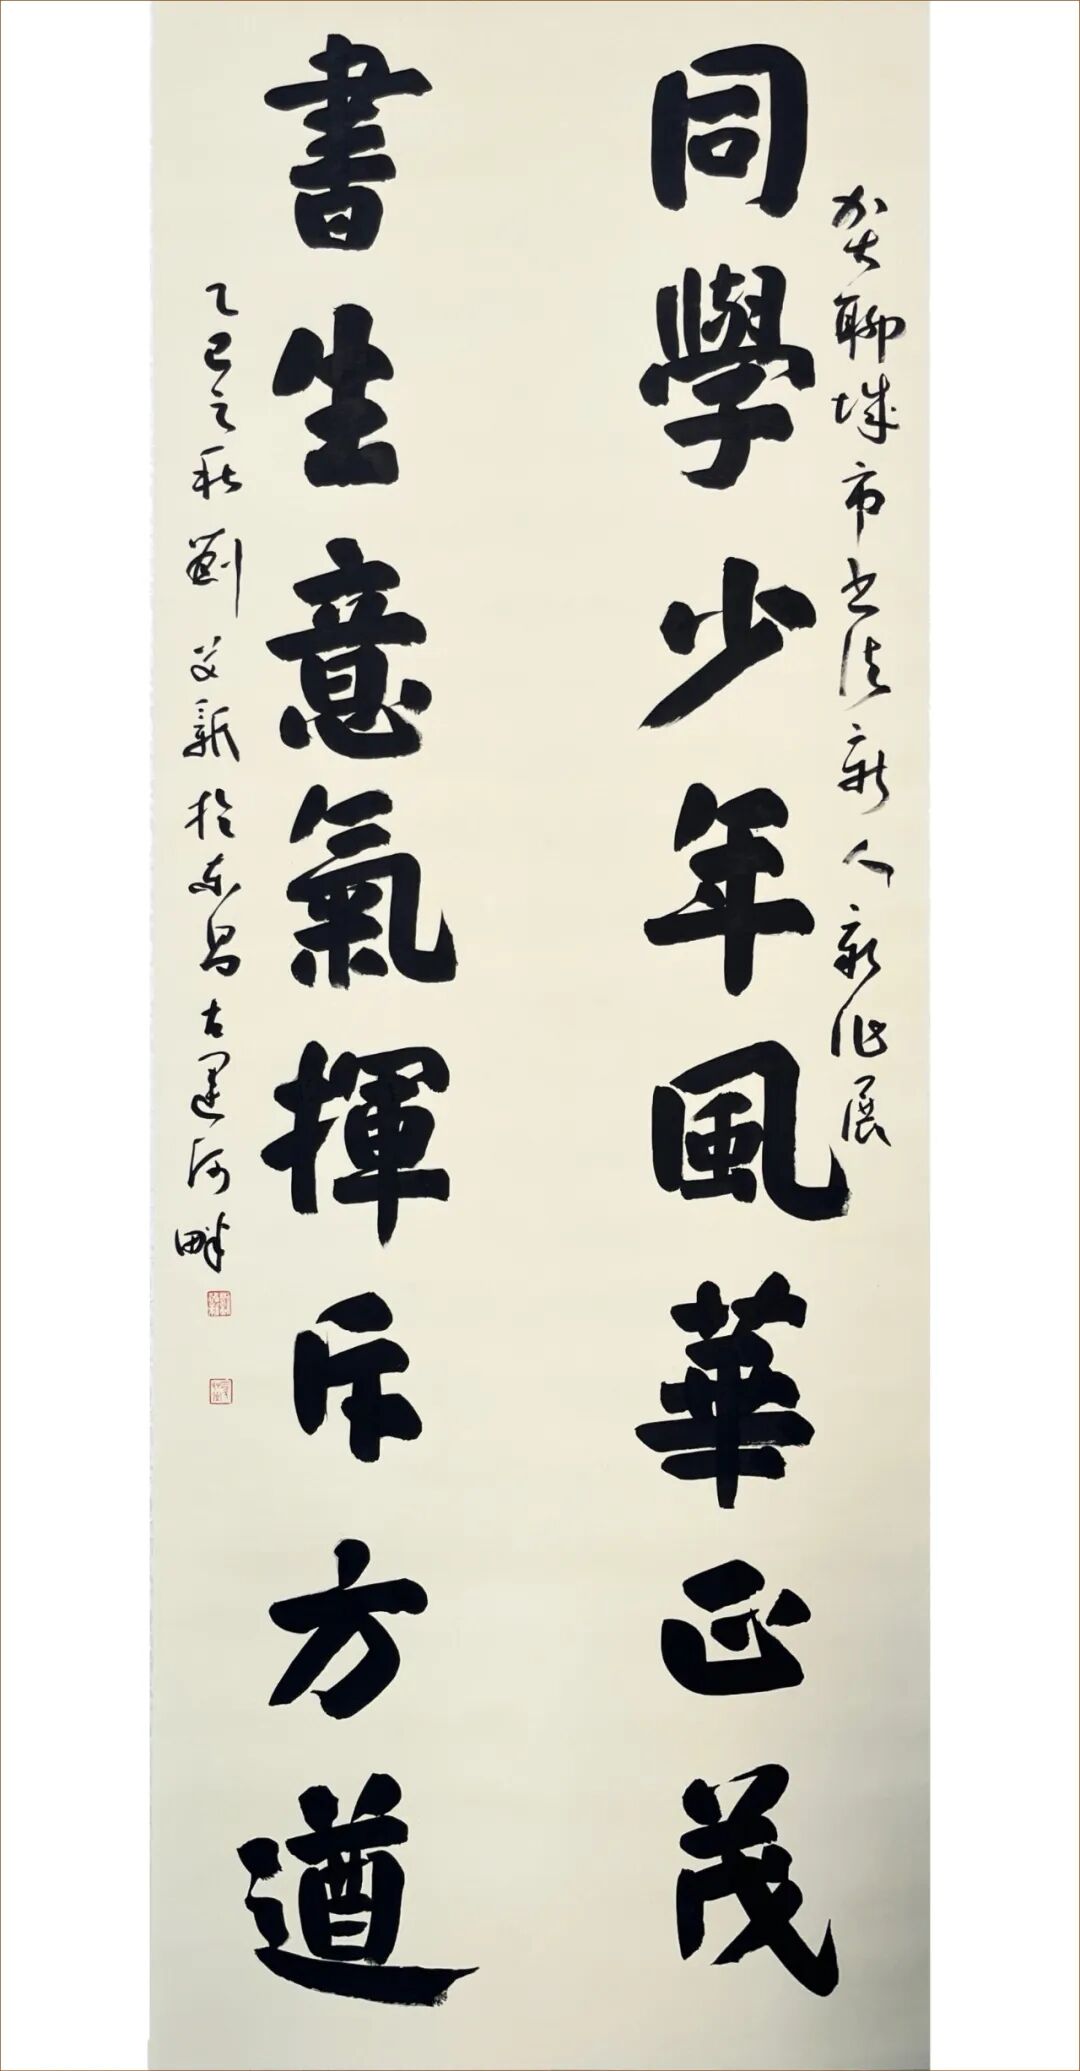 贺聊城市书法新人新作展
同學少年風華正茂
書生意氣揮斥方遒
乙巳之秋劉於东昌古運河畔